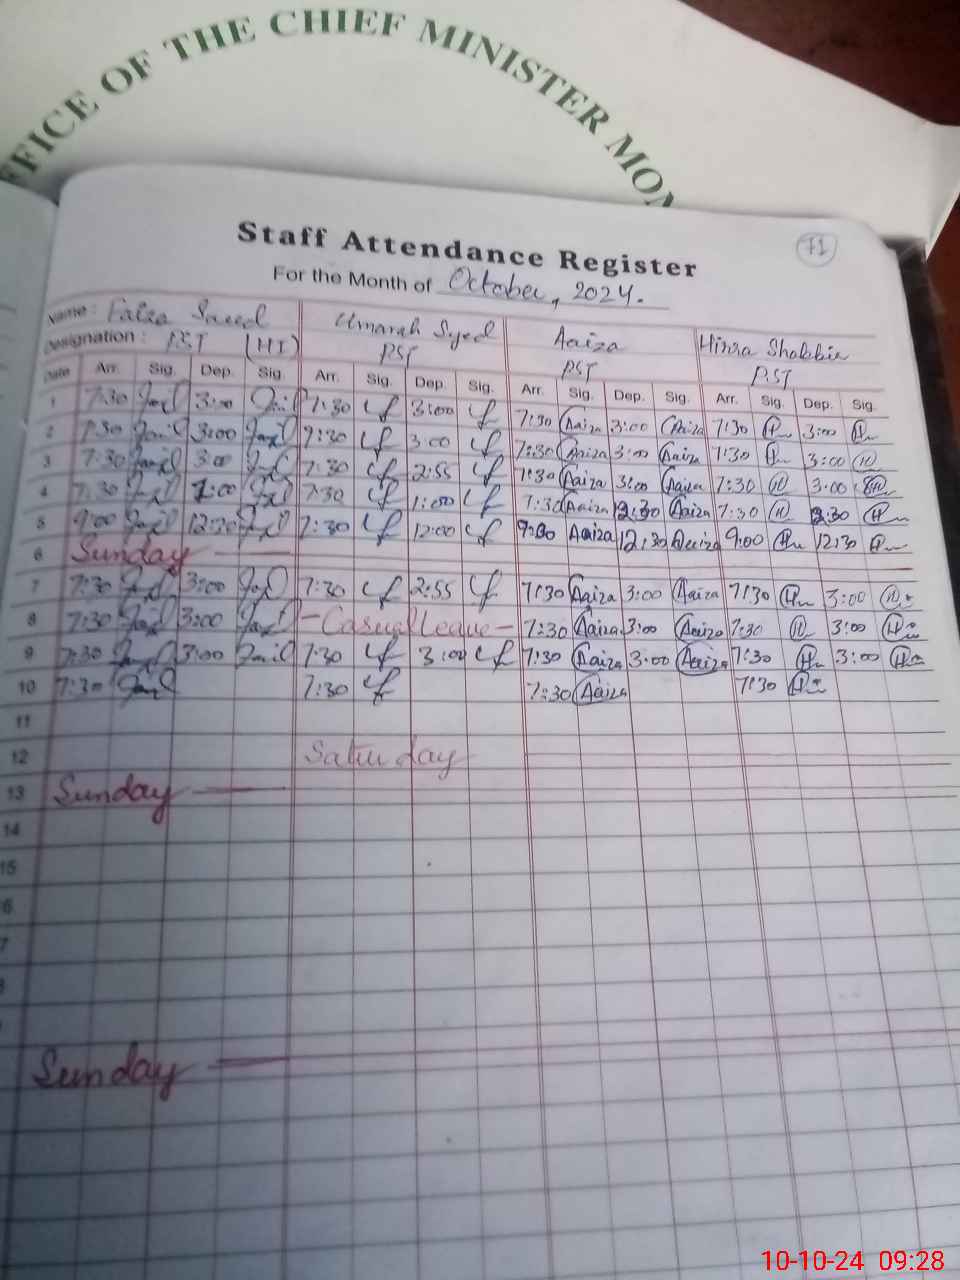 FFICE OF THE CHIEF MINISTER MON
Staff Attendance Register
71
For the Month of October, 2024.
Name : Faiza Saeed Umarah Syed Aaiza Hinra Shabbir
Designation : PST (HI) PST PST PST
Date Arr. Sig. Dep. Sig. Arr. Sig. Dep. Sig. Arr. Sig. Dep. Sig. Arr. Sig. Dep. Sig.
1 7:30 3:00 7:30 3:00 7:30 Aaiza 3:00 Aaiza 7:30 3:00
2 7:30 3:00 3:00 7:30 Aaiza 3:00 Aaiza 7:30 3:00
3 7:30 3:00 7:30 2:55 7:30 Aaiza 3:00 Aaiza 7:30 3:00
4 7:30 7:30 1:00 7:30 Aaiza Aaiza 7:30
5 9:00 7:30 12:00 Aaiza 12:30 Aaiza 9:00 12:30
6 Sunday
7:30 3:00 7:30 2:55 7:30 Aaiza 3:00 Aaiza 7:30 3:00
8 7:30 3:00 - Casual leave - 7:30 Aaiza 3:00 Aaiza 7:30 3:00
9 7:30 3:00 7:30 3:00 7:30 Aaiza 3:00 Aaiza 7:30 3:00
10 7:30 7:30 7:30 Aaiza 7:30
11
12 Saturday
13 Sunday
14
15
6
7
Sunday
10-10-24 09:28